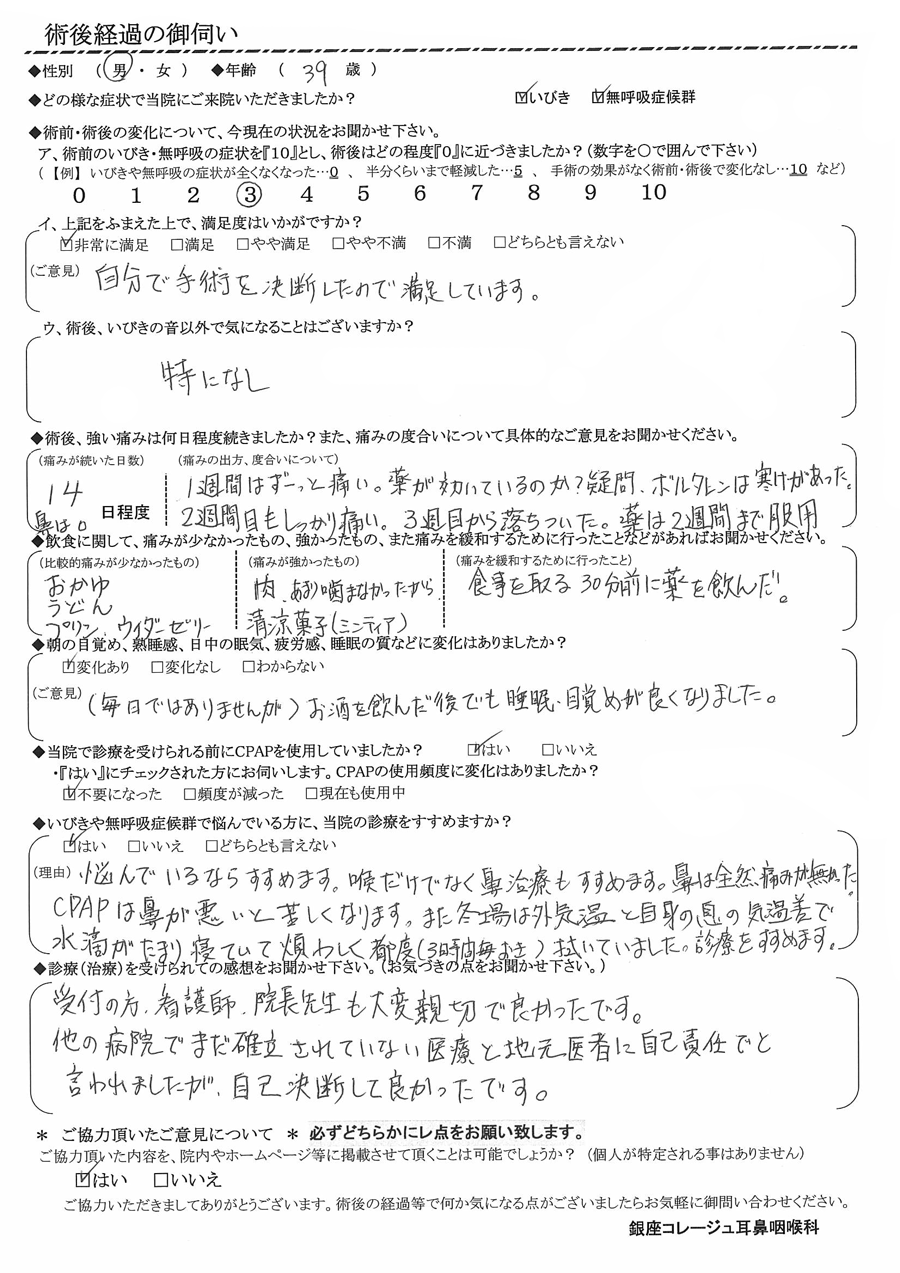 術後経過の御伺い
◆性別 （ 男 ・ 女 ） ◆年齢 （ 39 歳 ）
◆どの様な症状で当院にご来院いただきましたか？ ☑いびき ☑無呼吸症候群
◆術前・術後の変化について、今現在の状況をお聞かせ下さい。
ア、術前のいびき・無呼吸の症状を『10』とし、術後はどの程度『0』に近づきましたか？（数字を○で囲んで下さい）
（【例】 いびきや無呼吸の症状が全くなくなった…0 、 半分くらいまで軽減した…5 、 手術の効果がなく術前・術後で変化なし…10 など）
0 1 2 ③ 4 5 6 7 8 9 10
イ、上記をふまえた上で、満足度はいかがですか？
☑非常に満足 □満足 □やや満足 □やや不満 □不満 □どちらとも言えない
（ご意見） 自分で手術を決断したので満足しています。
ウ、術後、いびきの音以外で気になることはございますか？
特になし
◆術後、強い痛みは何日程度続きましたか？また、痛みの度合いについて具体的なご意見をお聞かせください。
（痛みが続いた日数） （痛みの出方、度合いについて）
14 1週間はずーっと痛い。薬が効いているのか？疑問、ボルタレンは寒けがあった。
鼻は0 日程度 2週間目もしっかり痛い。3週目から落ちついた。薬は2週間まで服用
◆飲食に関して、痛みが少なかったもの、強かったもの、また痛みを緩和するために行ったことなどがあればお聞かせください。
（比較的痛みが少なかったもの） （痛みが強かったもの） （痛みを緩和するために行ったこと）
おかゆ 肉、あまり噛まなかったから 食事を取る30分前に薬を飲んだ！
うどん
プリン、ウイダーゼリー 清涼菓子（ミンティア）
◆朝の目覚め、熟睡感、日中の眠気、疲労感、睡眠の質などに変化はありましたか？
☑変化あり □変化なし □わからない
（ご意見） （毎日ではありませんが）お酒を飲んだ後でも睡眠、目覚めが良くなりました。
◆当院で診療を受けられる前にCPAPを使用していましたか？ ☑はい □いいえ
・『はい』にチェックされた方にお伺いします。CPAPの使用頻度に変化はありましたか？
☑不要になった □頻度が減った □現在も使用中
◆いびきや無呼吸症候群で悩んでいる方に、当院の診療をすすめますか？
☑はい □いいえ □どちらとも言えない
（理由） 悩んでいるならすすめます。喉だけでなく鼻治療もすすめます。鼻は全然痛みが無かった。
CPAPは鼻が悪いと苦しくなります。また冬場は外気温と自身の息の気温差で
水滴がたまり寝ていて煩わしく都度（3時間毎おき）拭いていました。診療をすすめます。
◆診療（治療）を受けられての感想をお聞かせ下さい。（お気づきの点をお聞かせ下さい。）
受付の方、看護師、院長先生も大変親切で良かったです。
他の病院でまだ確立されていない医療と地元医者に自己責任でと
言われましたが、自己決断して良かったです。
＊ ご協力頂いたご意見について ＊ 必ずどちらかにレ点をお願い致します。
ご協力頂いた内容を、院内やホームページ等に掲載させて頂くことは可能でしょうか？ （個人が特定される事はありません）
☑はい □いいえ
ご協力いただきましてありがとうございます。術後の経過等で何か気になる点がございましたらお気軽に御問い合わせください。
銀座コレージュ耳鼻咽喉科